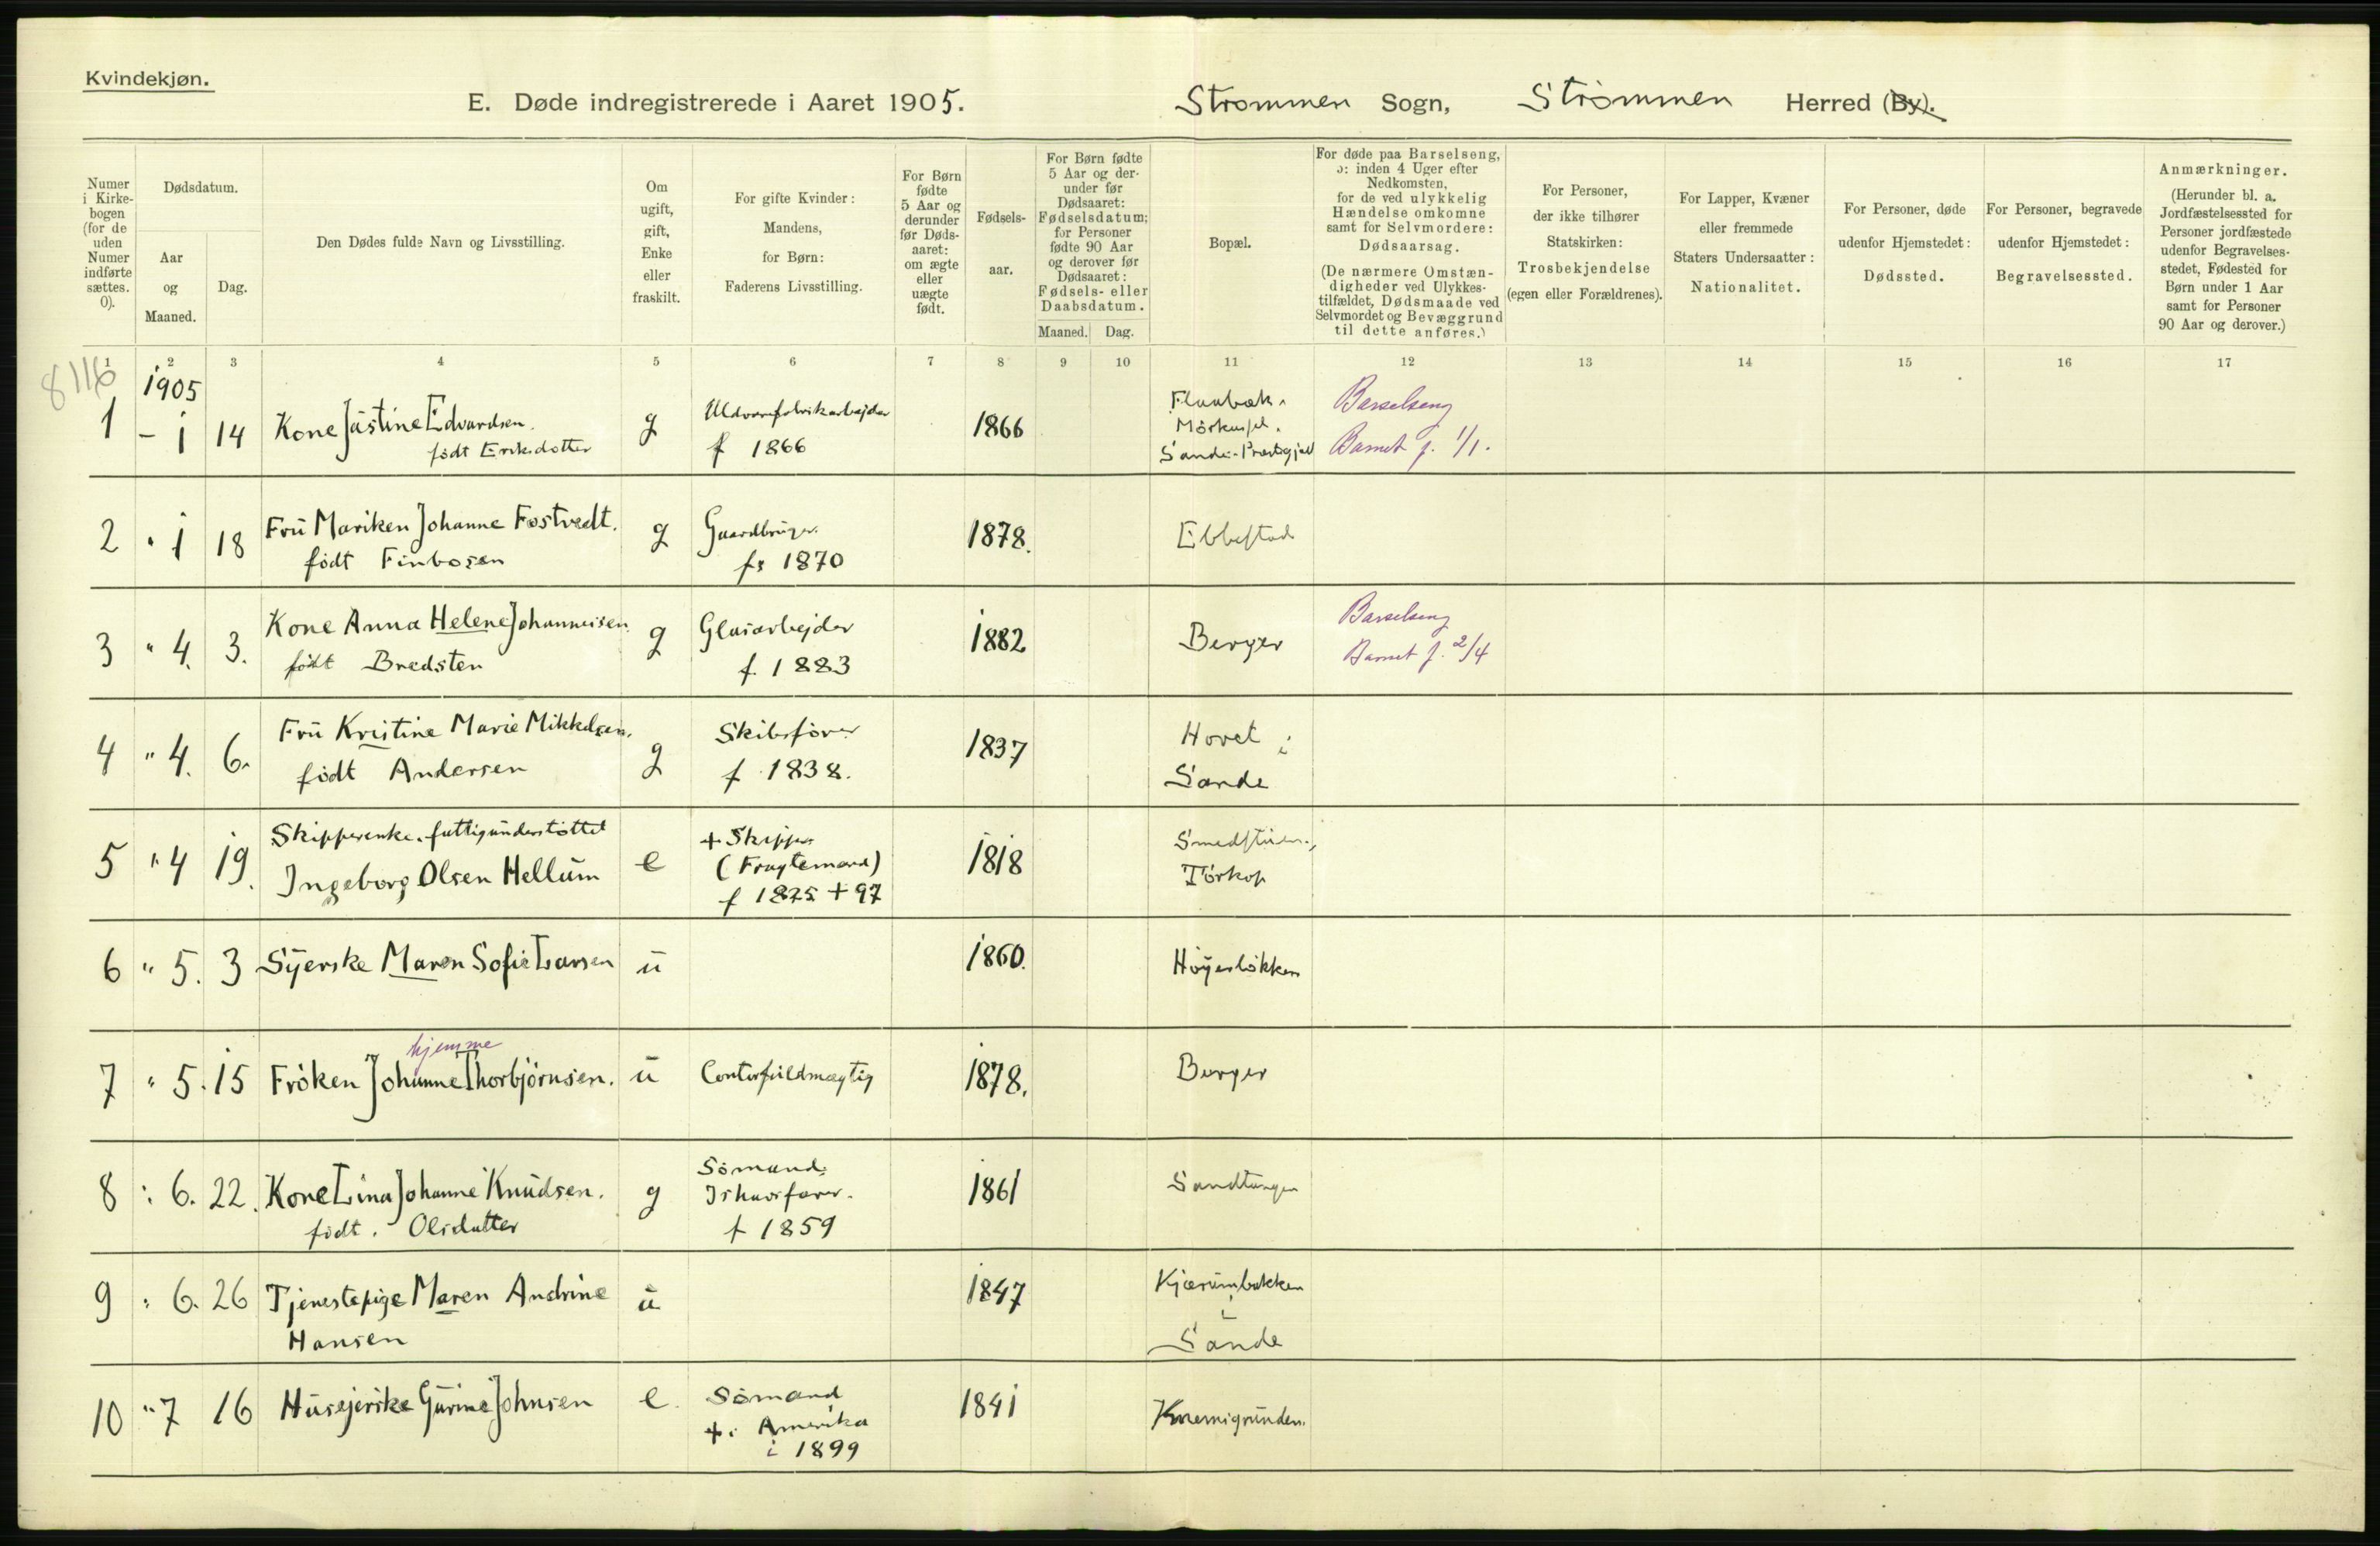 Kvindekjøn.
E. Døde indregistrerede i Aaret 1905. Strømmen Sogn, Strømmen Herred (By).
Numer i Kirkebogen (for de uden Numer indførte sættes. 0).
Dødsdatum.
Aar og Maaned.
Dag.
Den Dødes fulde Navn og Livsstilling.
Om ugift, gift, Enke eller fraskilt.
For gifte Kvinder: Mandens, for Børn: Faderens Livsstilling.
For Børn fødte 5 Aar og derunder før Dødsaaret: om ægte eller uægte født.
Fødselsaar.
For Børn fødte 5 Aar og derunder før Dødsaaret: Fødselsdatum; for Personer fødte 90 Aar og derover før Dødsaaret: Fødsels- eller Daabsdatum.
Maaned. Dag.
Bopæl.
For døde paa Barselseng, ɔ: inden 4 Uger efter Nedkomsten, for de ved ulykkelig Hændelse omkomne samt for Selvmordere: Dødsaarsag.
(De nærmere Omstændigheder ved Ulykkestilfældet, Dødsmaade ved Selvmordet og Bevæggrund til dette anføres.)
For Personer, der ikke tilhører Statskirken: Trosbekjendelse (egen eller Forældrenes).
For Lapper, Kvæner eller fremmede Staters Undersaatter: Nationalitet.
For Personer, døde udenfor Hjemstedet: Dødssted.
For Personer, begravede udenfor Hjemstedet: Begravelsessted.
Anmærkninger.
(Herunder bl. a. Jordfæstelsessted for Personer jordfæstede udenfor Begravelsesstedet, Fødested for Børn under 1 Aar samt for Personer 90 Aar og derover.)
1 2 3 4 5 6 7 8 9 10 11 12 13 14 15 16 17
8116
1905
1 - 1 14 Kone Justine Edvardsen. født Eriksdatter g Uldvarefabrikarbejder f 1866 1866 Sande Præstegjeld Barselseng Barnet f. 1/1.
2 " 1 18 Fru Mariken Johanne Fostvedt. født Finbosen g Gaardbruger. f. 1870 1878. Ebbestad
3 " 4. 3. Kone Anna Helene Johannesen født Bredsten g Glasarbejder f. 1883 1882 Berger Barselseng Barnet f. 2/4
4 " 4. 6. Fru Kristine Marie Mikkelsen. født Andersen g Skibsfører f 1838. 1837 Hovet i Sande
5 " 4 19. Skipperenke, fattigunderstøttet Ingeborg Olsen Hellum e + Skipper (Fragtemand) f 1825 + 97 1818 Smedstuen, Tørkop
6 " 5. 3 Syerske Maren Sofie Larsen u 1860. Høyesløkken
7 " 5. 15 Frøken Johanne Thorbjørnsen. hjemme u Contorfuldmægtig 1878. Berger
8 : 6. 22. Kone Lina Johanne Knudsen. født. Olsdatter g Sømand. Ishavsfarer. f 1859 1861 Sandtangen
9 : 6. 26 Tjenestepige Maren Andrine Hansen u 1847 Kjærumbakken i Sande
10 " 7 16 Husejerske Gurine Johnsen e. Sømand +. i Amerika i 1899 1841